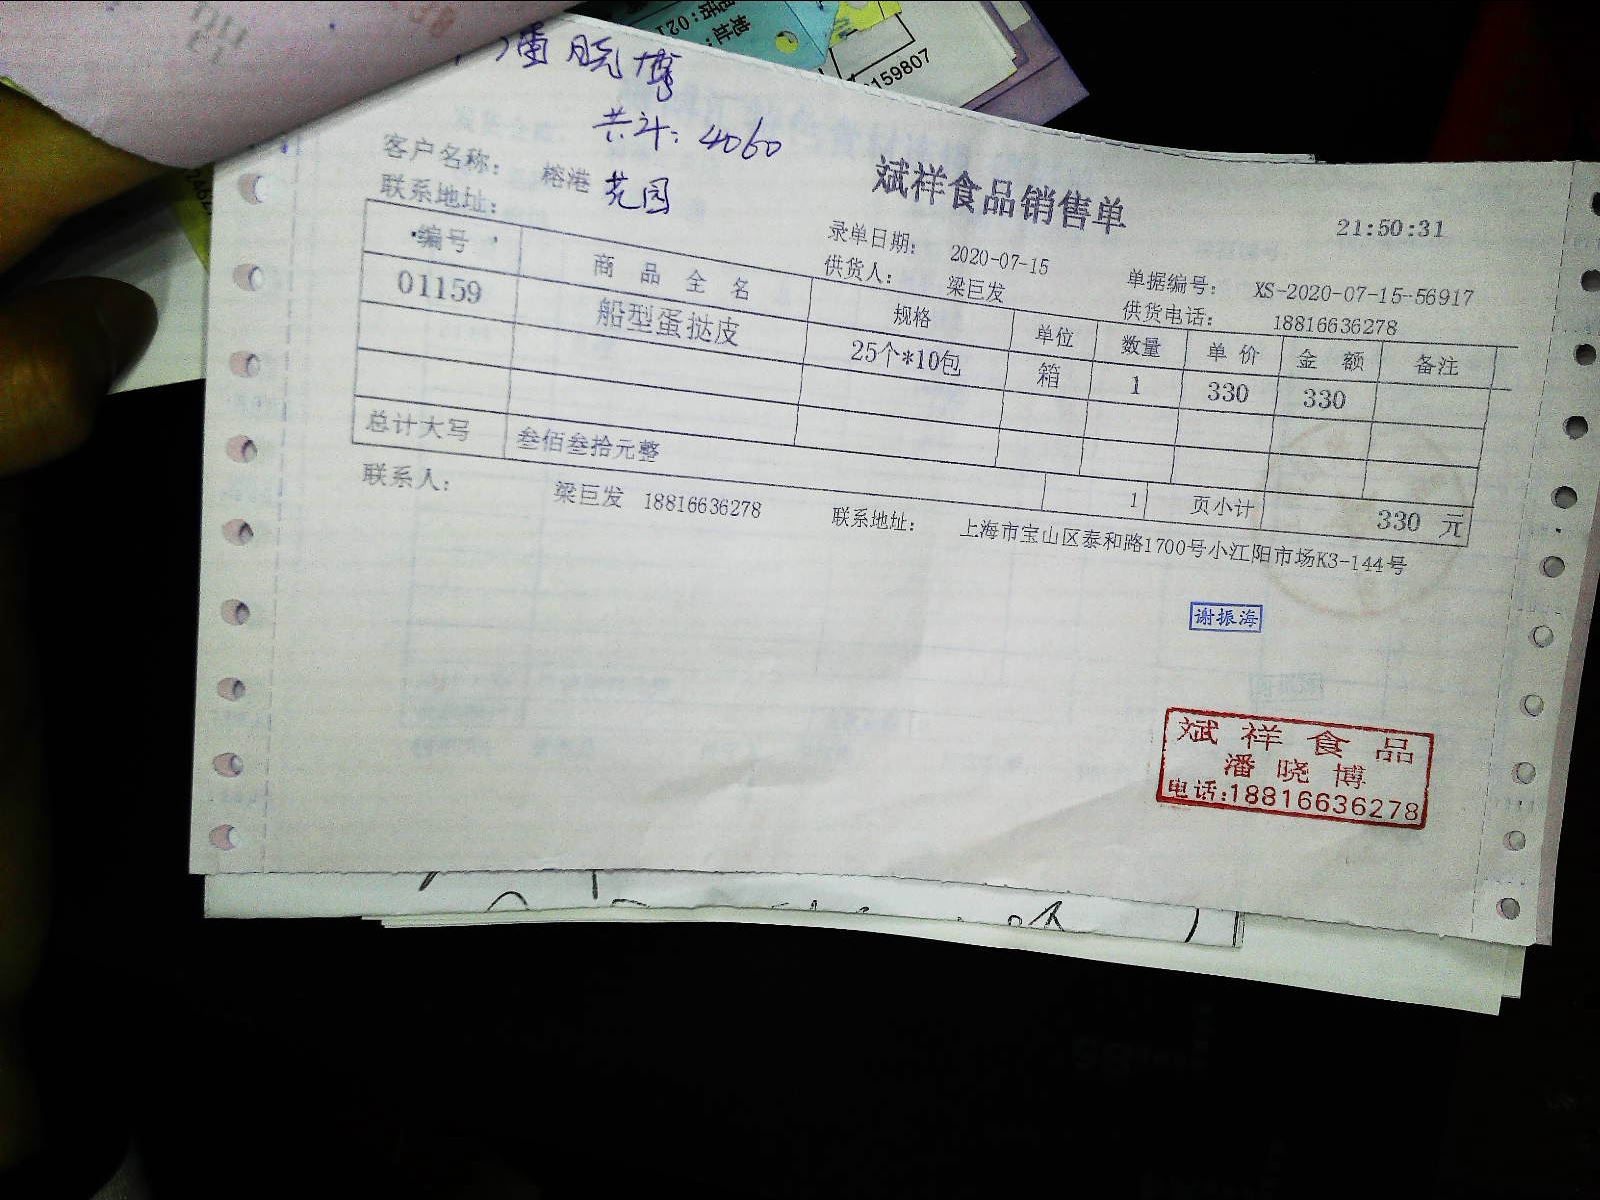 地址:
电话:021
159807
潘晓博
共计:4060
客户名称: 榕港 花园
斌祥食品销售单
21:50:31
联系地址:
录单日期: 2020-07-15
单据编号: XS-2020-07-15-56917
供货人: 梁巨发
供货电话: 18816636278
编号 商品全名 规格 单位 数量 单价 金额 备注
01159 船型蛋挞皮 25个*10包 箱 1 330 330
总计大写 叁佰叁拾元整 1 页小计 330 元
联系人: 梁巨发 18816636278 联系地址: 上海市宝山区泰和路1700号小江阳市场K3-144号
谢振海
斌祥食品
潘晓博
电话:18816636278